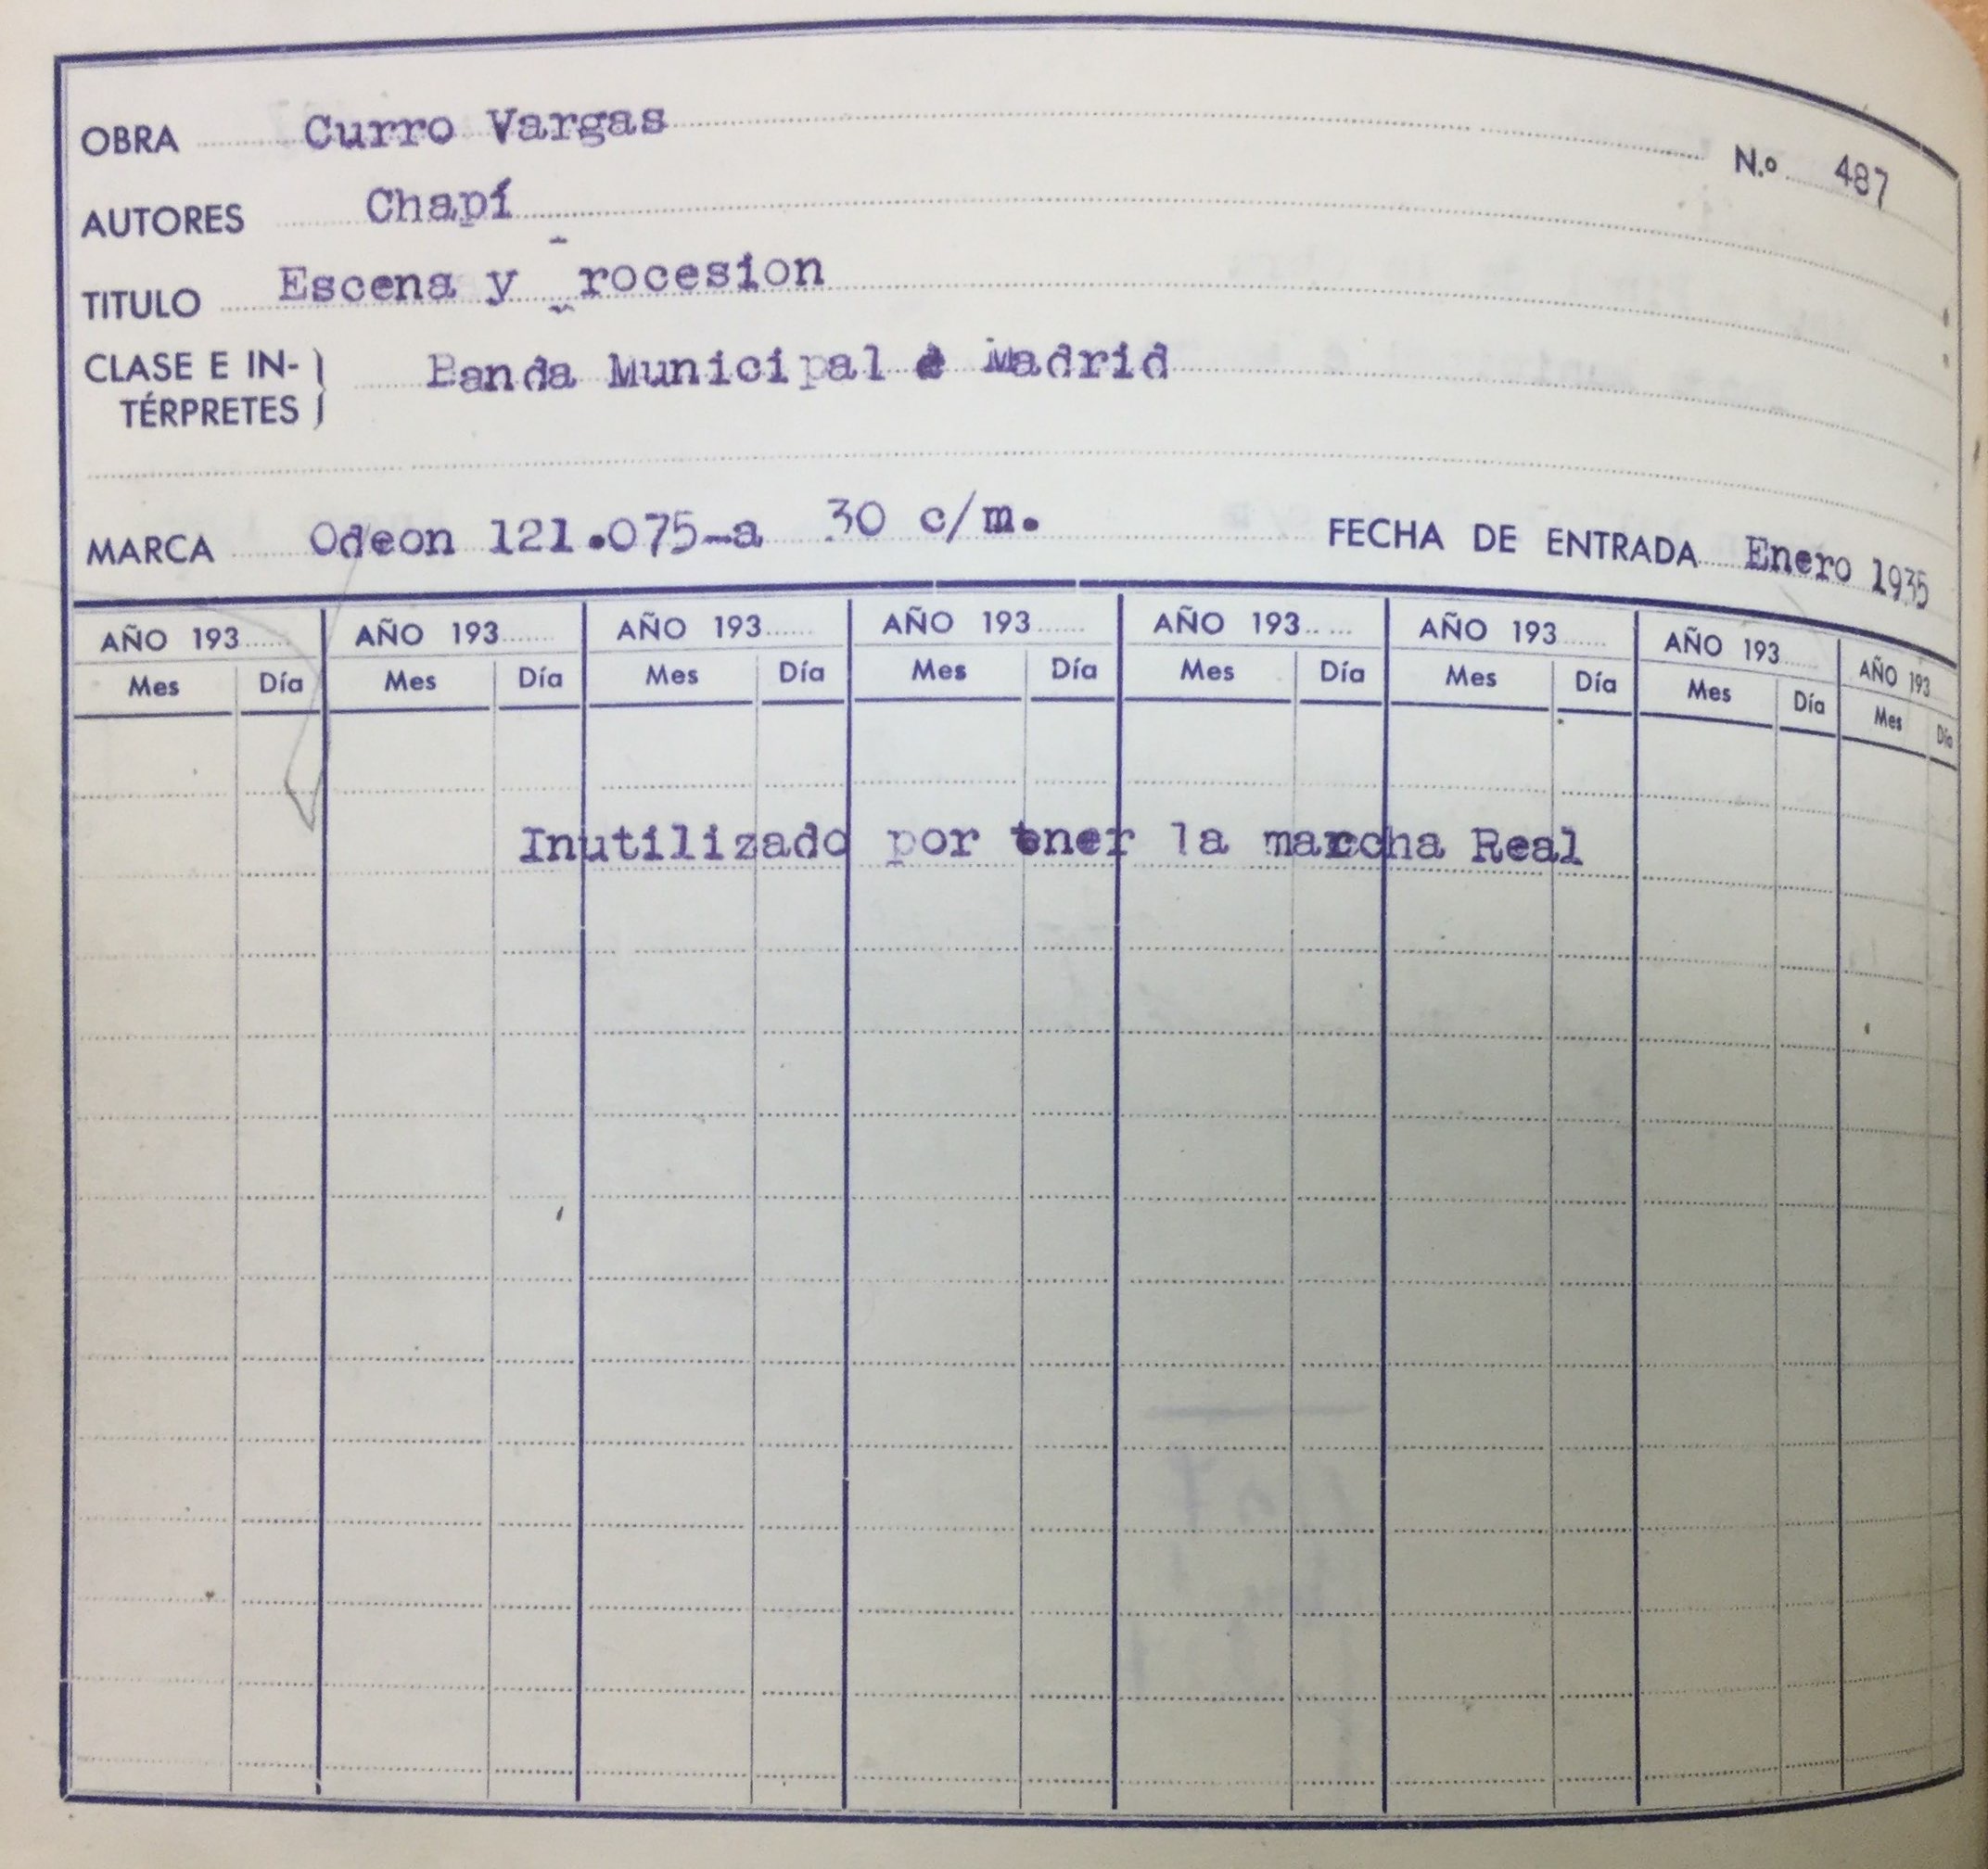 OBRA Curro Vargas N.o 487
AUTORES Chapí
TITULO Escena y rocesion
CLASE E IN-
TÉRPRETES Banda Municipal e Madrid
MARCA Odeon 121.075-a 30 c/m. FECHA DE ENTRADA Enero 1935
AÑO 193 AÑO 193 AÑO 193 AÑO 193 AÑO 193 AÑO 193 AÑO 193 AÑO 193
Mes Día Mes Día Mes Día Mes Día Mes Día Mes Día Mes Día Mes Día
Inutilizado por tner la marcha Real